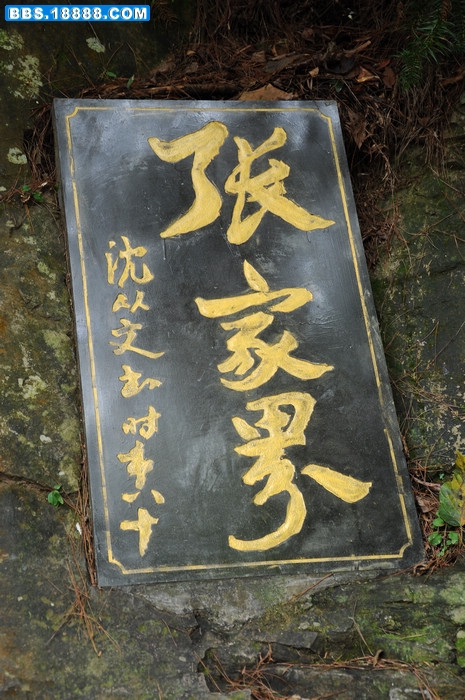 BBS.18888.COM
张家界
沈从文书时年八十